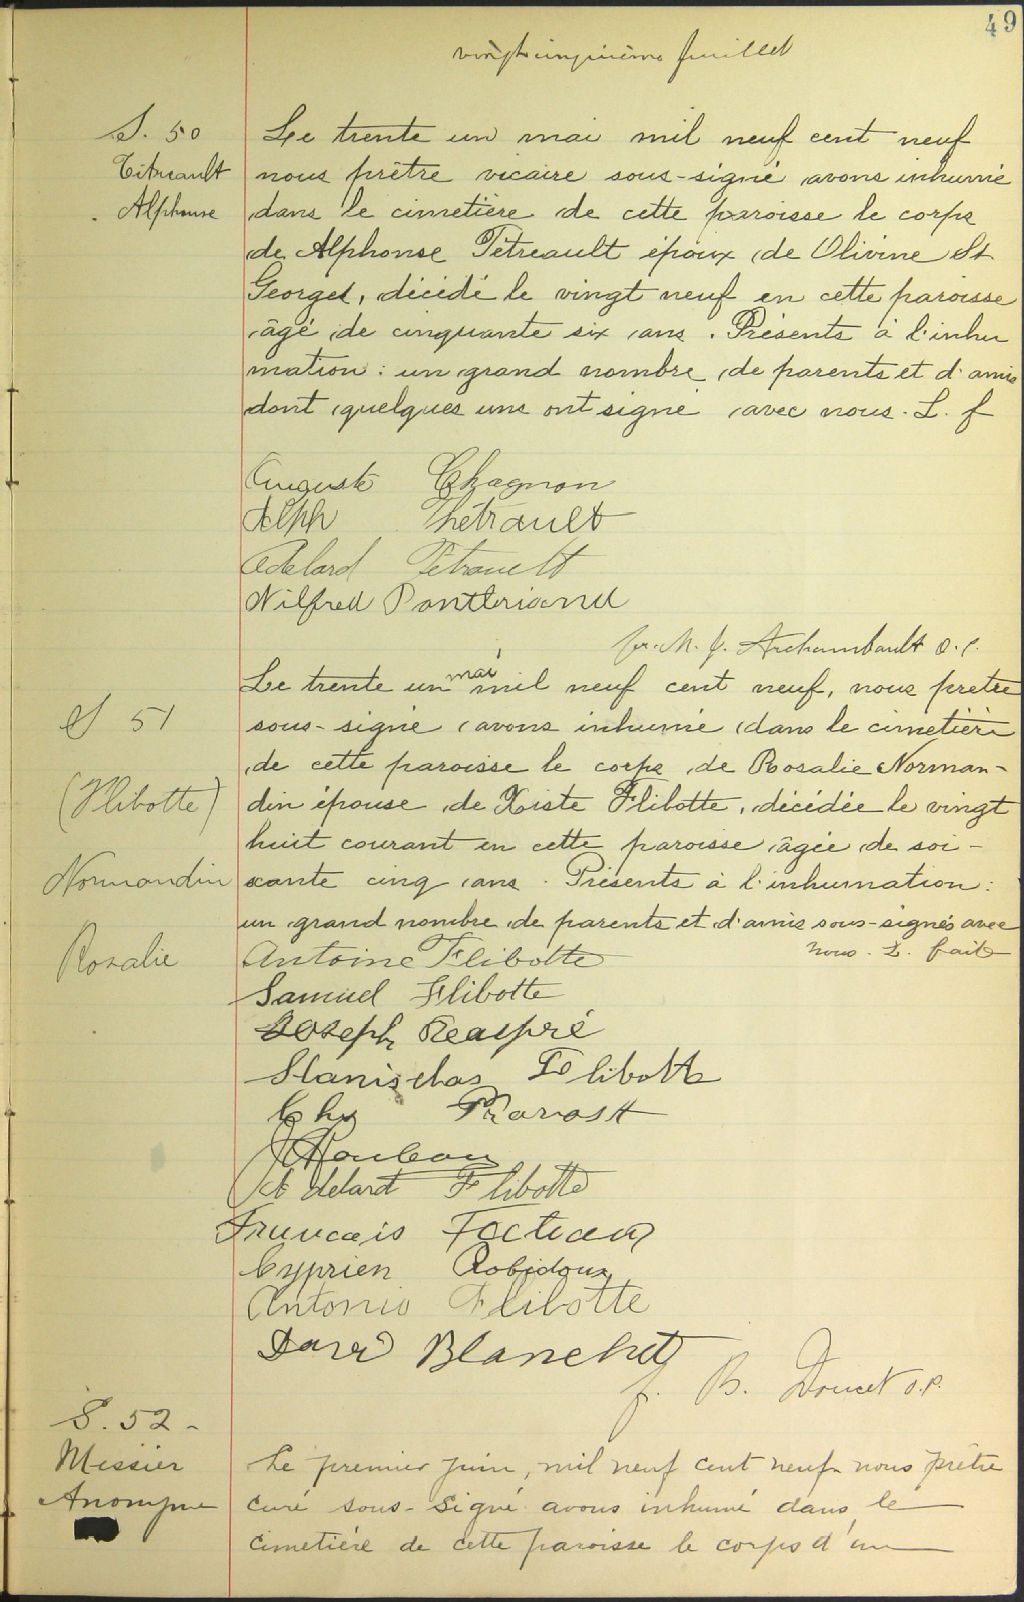 49
vingt cinquième feuillet
S. 50
Tétreault
Alphonse
Le trente un mai mil neuf cent neuf
nous prêtre vicaire sous-signé avons inhumé
dans le cimetière de cette paroisse le corps
de Alphonse Tétreault époux de Olivine St
Georges, décédé le vingt neuf en cette paroisse
âgé de cinquante six ans. Présents à l'inhu
mation: un grand nombre de parents et d'amis
dont quelques uns ont signé avec nous. L. f
Auguste Chagnon
Alph Thétrault
Adelard Tétrault
Wilfred Pontbriand
fr. M. J. Archambault o.p.
S 51
(Flibotte)
Normandin
Rosalie
Le trente un mai mil neuf cent neuf, nous prêtre
sous-signé avons inhumé dans le cimetière
de cette paroisse le corps de Rosalie Norman-
din épouse de Xiste Flibotte, décédée le vingt
huit courant en cette paroisse âgée de soi-
xante cinq ans. Présents à l'inhumation:
un grand nombre de parents et d'amis sous-signés avec
nous. L. faite
Antoine Flibotte
Samuel Flibotte
Joseph Beaupré
Stanislas Flibotte
Chs Provost
Adelard Flibotte
Francais Fecteau
Cyprien Robidoux
Antonio Flibotte
David Blanchet
f. B. Doucet o.p.
S. 52-
Messier
Anonyme
Le premier juin, mil neuf cent neuf nous prêtre
curé sous-signé avons inhumé dans le
cimetière de cette paroisse le corps d'un